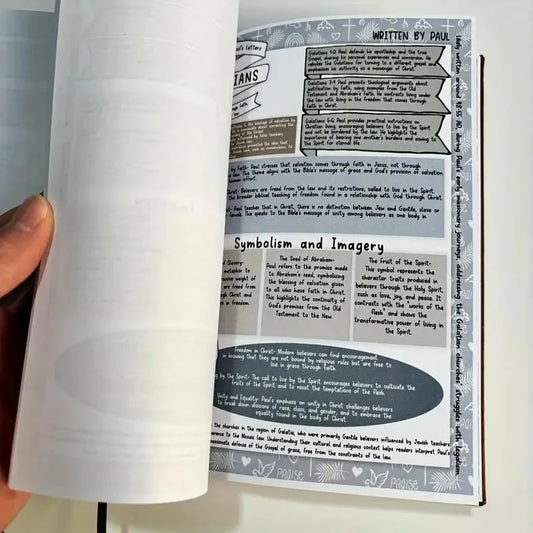 WRITTEN BY PAUL
Paul's Letters
IANS
Galatians 1-2: Paul defends his apostleship and the true
Gospel, sharing his personal experiences and conversion. He
rebukes the Galatians for turning to a different gospel and
emphasizes his authority as a messenger of Christ.
Galatians 3-4: Paul presents theological arguments about
justification by faith, using examples from the Old
Testament and Abraham's faith. He contrasts living under
the law with living in the freedom that comes through
faith in Christ.
Galatians 5-6: Paul provides practical instructions on
Christian living, encouraging believers to live by the Spirit
and not be burdened by the law. He highlights the
importance of bearing one another's burdens and sowing to
the Spirit for eternal life.
by Faith- Paul stresses that salvation comes through faith in Jesus, not through
law. This theme aligns with the Bible's message of grace and God's provision of salvation
human effort.
Christ- Believers are freed from the law and its restrictions, called to live in the Spirit.
the broader biblical teaching of freedom found in a relationship with God through Christ.
Paul teaches that in Christ, there is no distinction between Jew and Gentile, slave or
female. This speaks to the Bible's message of unity among believers as one body in
Symbolism and Imagery
of Slavery-
metaphor to
weight of
are freed from
through Christ
and in
freedom.
The Seed of Abraham-
Paul refers to the promise made
to Abraham's seed, symbolizing
the blessing of salvation given
to all who have faith in Christ.
This highlights the continuity of
God's promises from the Old
Testament to the New.
The Fruit of the Spirit-
This symbol represents the
character traits produced in
believers through the Holy Spirit,
such as love, joy, and peace. It
contrasts with the "works of
the flesh" and shows the
transformative power of living in
the Spirit.
Freedom in Christ- Modern believers can find encouragement
in knowing that they are not bound by religious rules but are free to
live in grace through faith.
by the Spirit- The call to live by the Spirit encourages believers to cultivate the
fruits of the Spirit and to resist the temptations of the flesh.
Unity and Equality- Paul's emphasis on unity in Christ challenges believers
to break down divisions of race, class, and gender, and to embrace the
equality found in the body of Christ.
the churches in the region of Galatia, who were primarily Gentile believers influenced by Jewish teachers
to the Mosaic law. Understanding their cultural and religious context helps readers interpret Paul's
passionate defense of the Gospel of grace, free from the constraints of the law.
likely written around 48-55 AD, during Paul's early missionary journeys, addressing the Galatian churches' struggles with legalism.
PRAISE
PRAISE